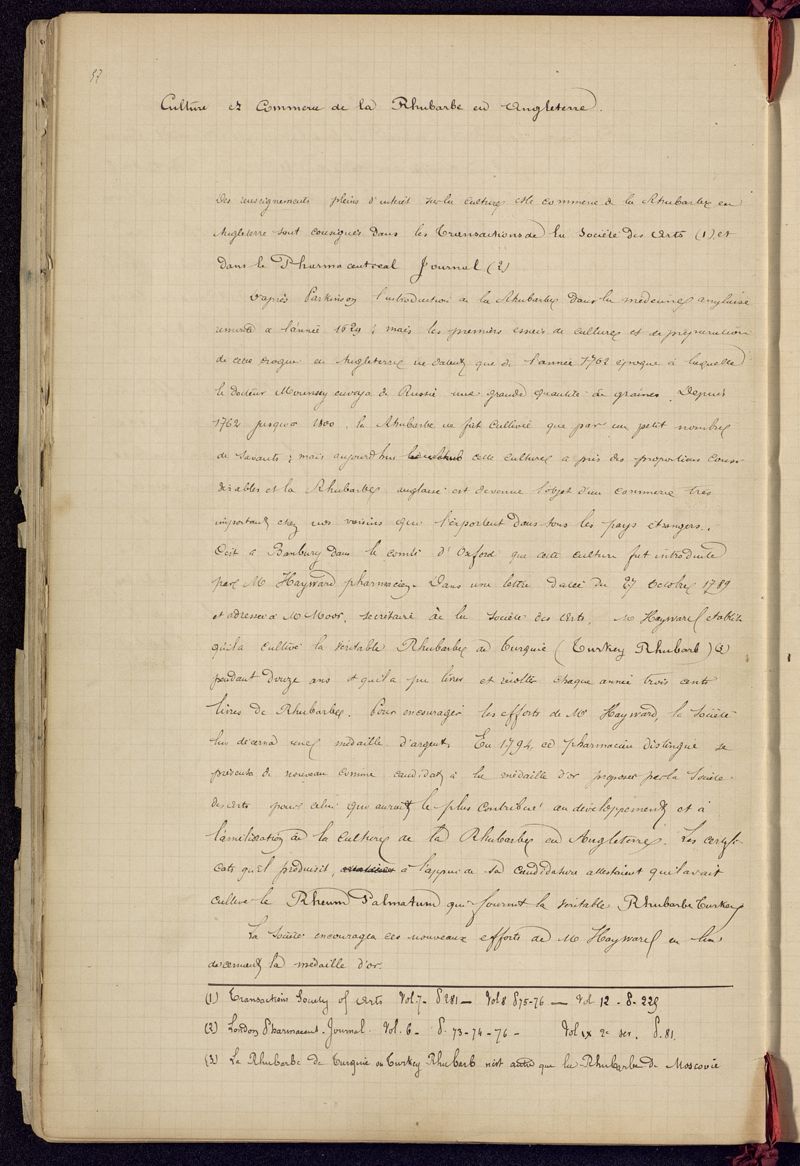 57
Culture et Commerce de la Rhubarbe en Angleterre.
Des renseignements pleins d'interêt sur la culture et le commerce de la Rhubarbe en
Angleterre sont consignés dans les Transactions de la Société des Arts (1) et
dans le Pharmaceutical Journal (2)
D'après Parkinson l'introduction de la Rhubarbe dans la médecine anglaise
remonte a l'année 1629 ; mais les premiers essais de culture et de préparation
de cette drogue en Angleterre ne datent que de l'année 1762 époque à laquelle
le docteur Mounsey envoya de Russie une grande quantité de graines. Depuis
1762 jusqu'a 1800, la Rhubarbe ne fut cultivée que par un petit nombre
de savants ; mais aujourd'hui cette culture a pris des proportions consi
dérables et la Rhubarbe anglaise est devenue l'objet d'un commerce très
important chez nos voisins qui l'exportent dans tous les pays etrangers.
C'est a Banbury dans le comté d'Oxford que cette culture fut introduite
par Mr Hayward pharmacien. Dans une lettre datée du 27 Octobre 1789
et adressée a Mr Moor, secrétaire de la Société des Arts, Mr Hayward etablit
qu'il a cultivé la veritable Rhubarbe de Turquie (Turkey Rhubarb) (3)
pendant douze ans et qu'il a pu livrer et récolter chaque année trois cents
livres de Rhubarbe. Pour encourager les efforts de Mr Hayward, la Société
lui décerna une médaille d'argent. En 1794 ce pharmacien distingué se
présenta de nouveau comme candidat à la médaille d'or proposée par la Société
des Arts pour celui qui aurait le plus contribué au développement et à
l'amélioration de la culture de la Rhubarbe en Angleterre. Les certifi-
cats qu'il produisit, à l'appui de sa candidature attestaient qu'il avait
cultivé le Rheum Palmatum qui fournit la veritable Rhubarbe Turkey
La Société encouragea ces nouveaux efforts de Mr Hayward en lui
décernant la médaille d'or.
(1) Transactions Society of Arts Vol 7- P. 281 — Vol 8 P. 75-76 — Vol 12 - P. 225
(2) London Pharmaceut. Journal. Vol. 6 - P. 73-74-76 - Vol ix 2e ser. P. 81.
(3) La Rhubarbe de Turquie ou Turkey Rhubarb n'est autre que la Rhubarbe de Moscovie